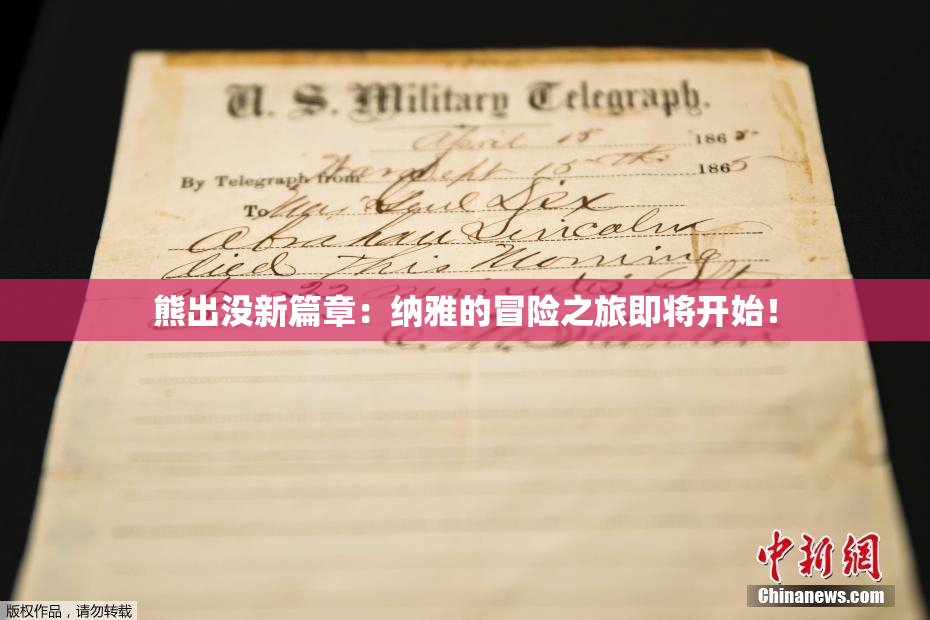 U. S. Military Telegraph.
April 15 1865
By Telegraph from War Dept 15th 1865
To Maj Genl Dix
Abraham Lincoln
died This Morning
at 22 minutes after
熊出没新篇章：纳雅的冒险之旅即将开始！
E. M. Stanton
中新网
Chinanews.com
版权作品，请勿转载